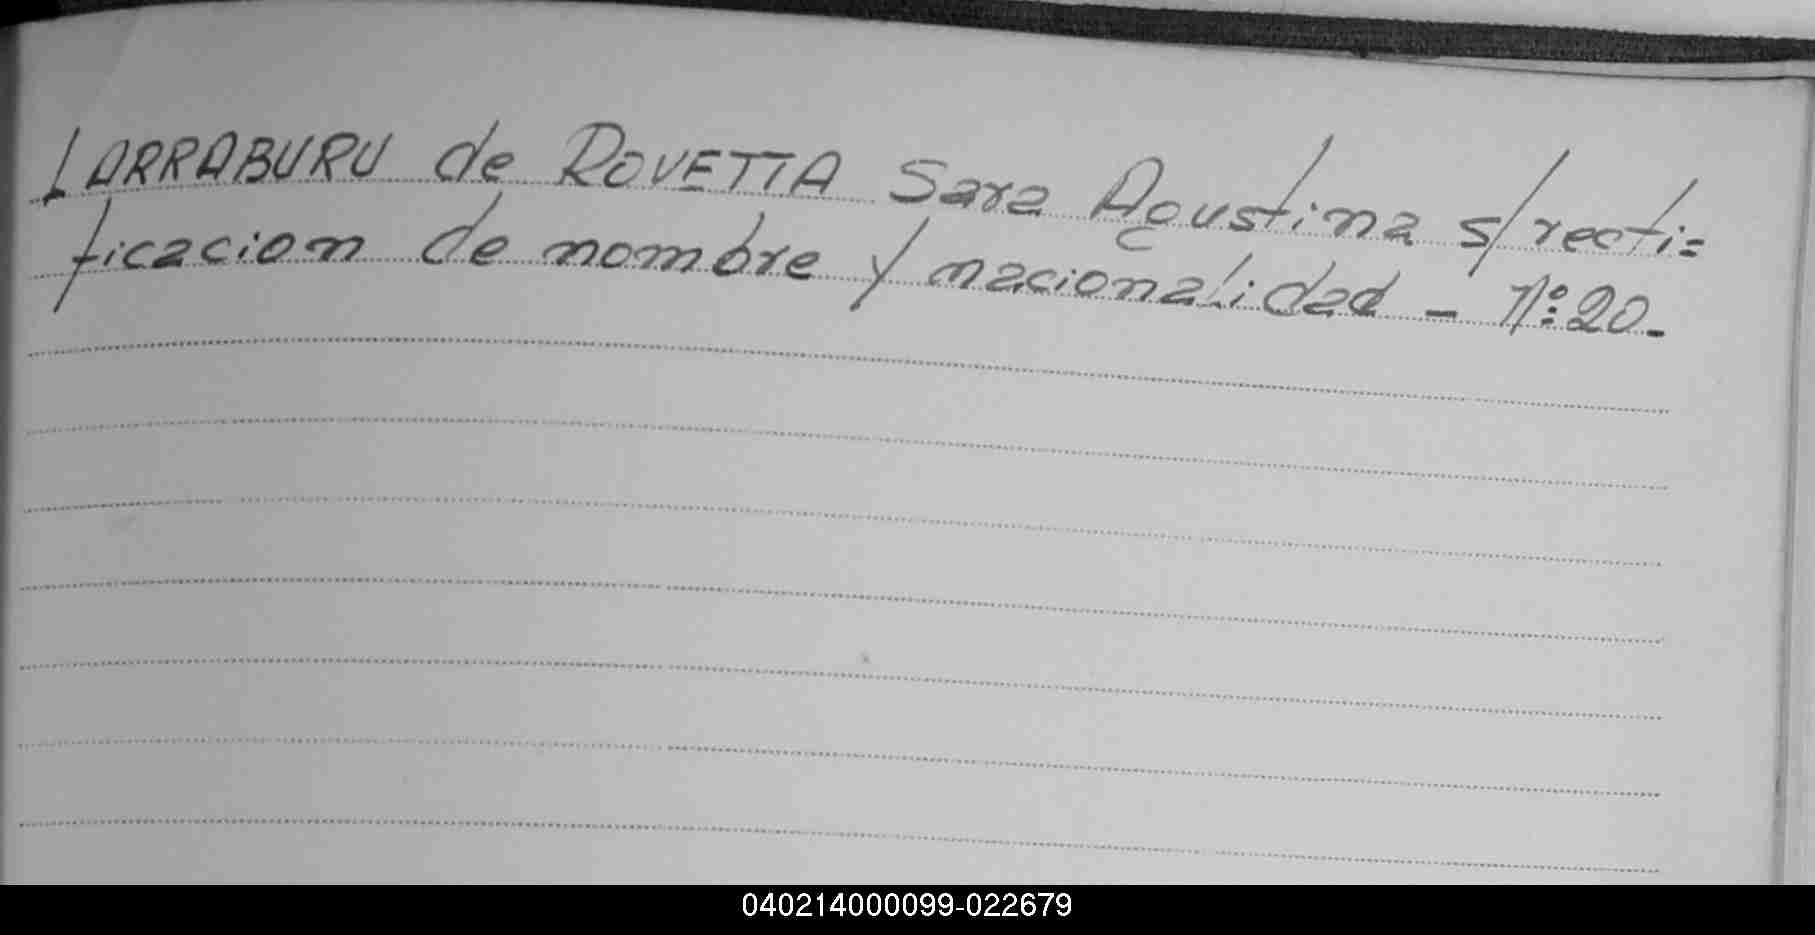 LARRABURU de ROVETTA Sara Agustina s/recti=
ficacion de nombre y nacionalidad - Nº: 20.-
040214000099-022679